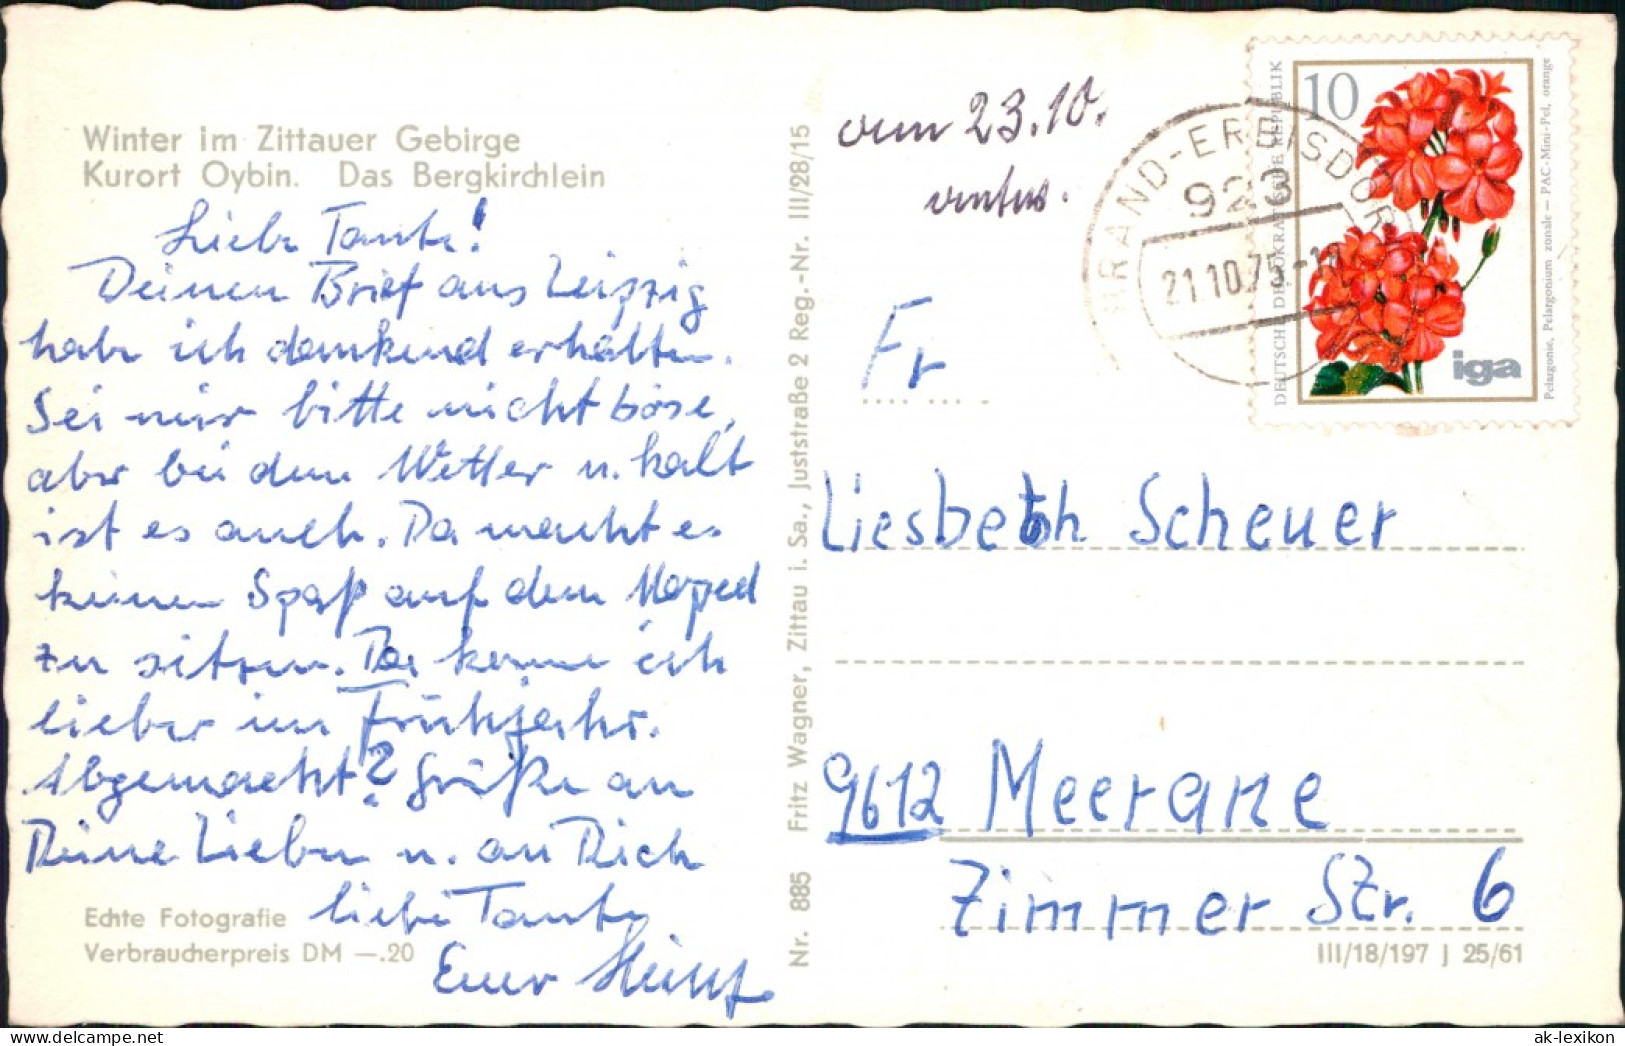 Winter im Zittauer Gebirge
Kurort Oybin. Das Bergkirchlein
Liebe Tante!
Deinen Brief aus Leipzig
habe ich dankend erhalten.
Sei mir bitte nicht böse,
aber bei dem Wetter u. kalt
ist es auch. Da macht es
keinen Spaß auf dem Moped
zu sitzen. Da komme ich
lieber im Frühjahr.
Abgemacht? Grüße an
Deine Lieben u. an Dich
liebe Tante
Euer Heinz
Echte Fotografie
Verbraucherpreis DM —.20
Nr. 885 Fritz Wagner, Zittau i. Sa., Juststraße 2 Reg.-Nr. III/28/15
vom 23.10.
BRAND-ERBISDORF
923
21.10.75
DEUTSCHE DEMOKRATISCHE REPUBLIK
10
Pelargonie, Pelargonium zonale — PAC-Mini-Pel, orange
iga
Fr
Liesbeth Scheuer
9612 Meerane
Zimmer Str. 6
III/18/197 J 25/61
ak-lexikon